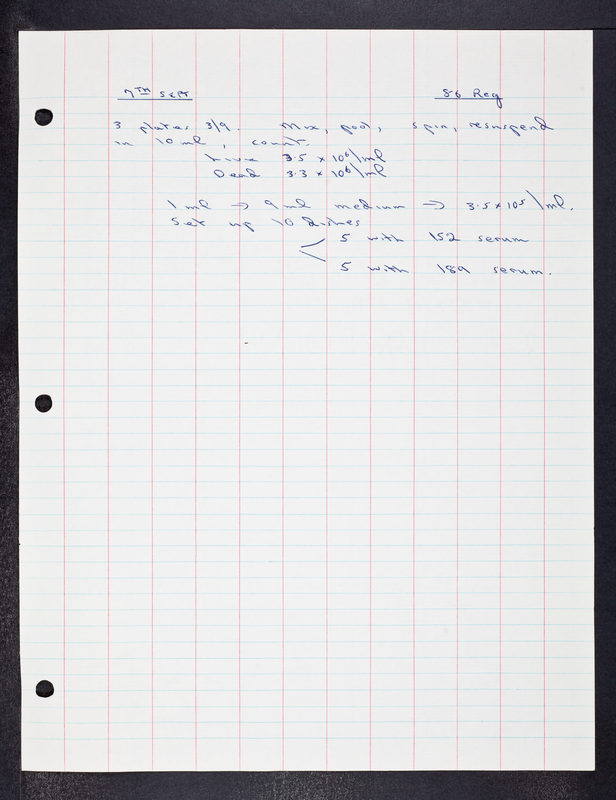 7TH SEPT 86 Req
3 plates 3/9. Mix, pool, spin, resuspend
in 10 ml, count.
Live 3.5 x 10⁶/ml
Dead 3.3 x 10⁶/ml
1 ml → 9 ml medium → 3.5 x 10⁵/ml.
Set up 10 dishes
5 with 152 serum
5 with 189 serum.